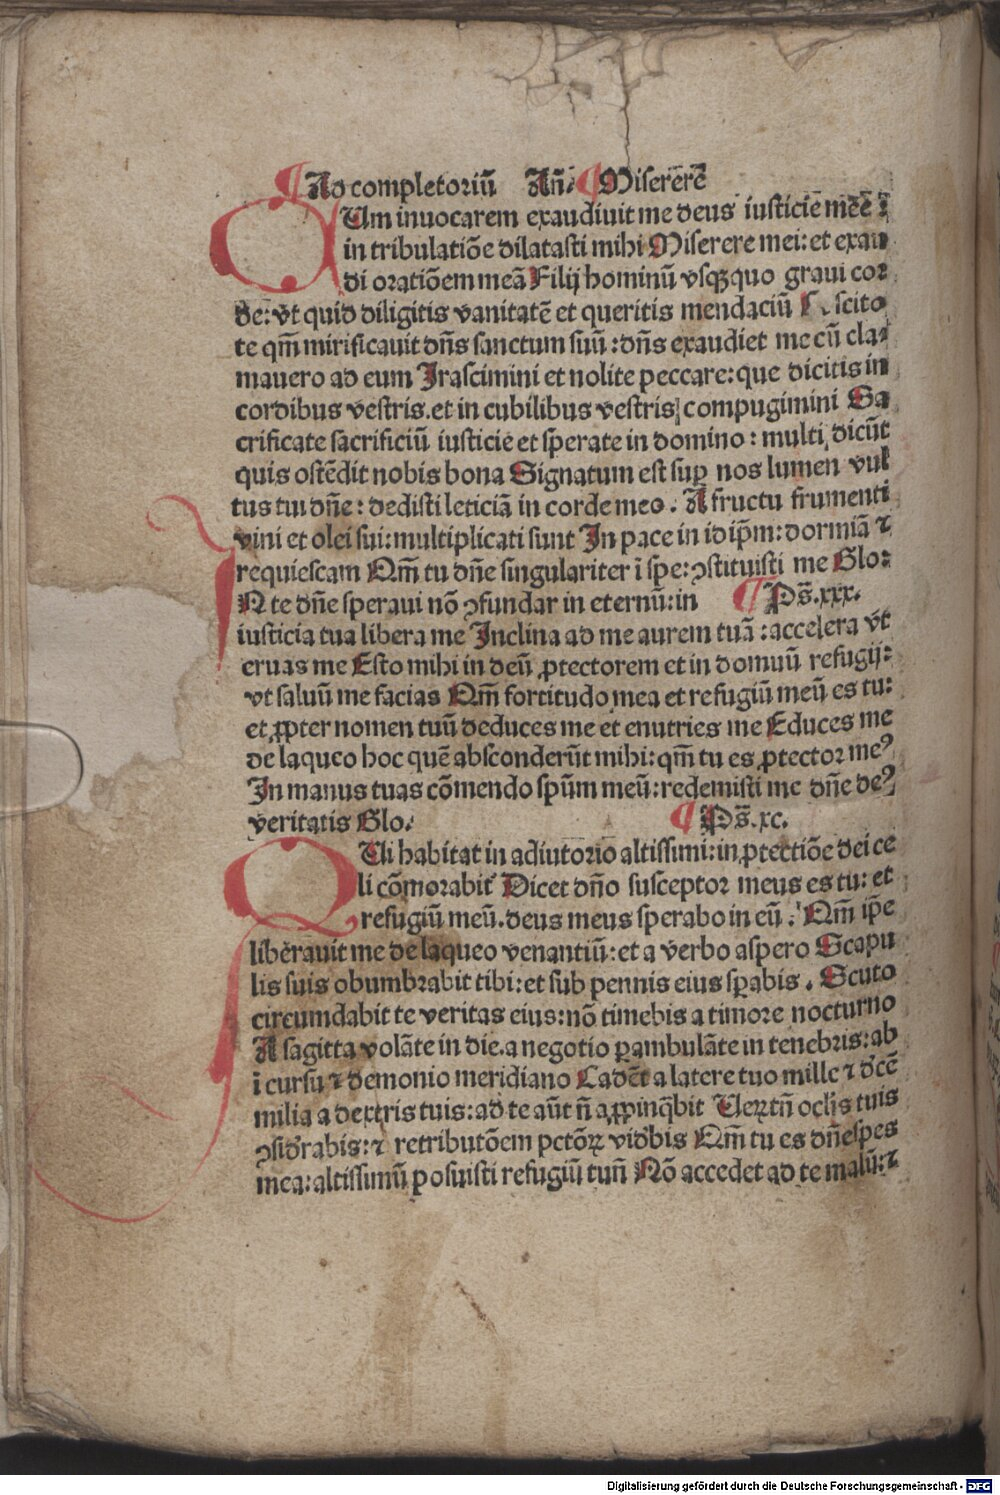 ¶ Ad completoriū Añ. ¶ Miserere
CUm inuocarem exaudiuit me deus iusticie mee :
in tribulatiōe dilatasti mihi Miserere mei: et exau
di oratiōem meā Filij hominū vsqꝫquo graui cor
de: vt quid diligitis vanitatē et queritis mendaciū scito
te qm̄ mirificauit dn̄s sanctum suū : dn̄s exaudiet me cū cla⸗
mauero ad eum Irascimini et nolite peccare: que dicitis in
cordibus vestris. et in cubilibus vestris compugimini Sa
crificate sacrificiū iusticie et sperate in domino : multi dicūt
quis ostēdit nobis bona Signatum est suꝑ nos lumen vul
tus tui dn̄e : dedisti leticiā in corde meo . A fructu frumenti
vini et olei sui: multiplicati sunt In pace in idip̄m: dormiā ⁊
requiescam Qm̄ tu dn̄e singulariter ī spe: ꝯstituisti me Glo:
IN te dn̄e speraui nō ꝯfundar in eternū: in ¶ Ps̄. xxx.
iusticia tua libera me Inclina ad me aurem tuā : accelera vt
eruas me Esto mihi in deū ꝓtectorem et in domuū refugij:
vt saluū me facias Qm̄ fortitudo mea et refugiū meū es tu:
et ꝓpter nomen tuū deduces me et enutries me Educes me
de laqueo hoc quē absconderūt mihi: qm̄ tu es ꝓtector meꝰ
In manus tuas cōmendo spūm meū: redemisti me dn̄e deꝰ
veritatis Glo. ¶ Ps̄. xc.
QUi habitat in adiutorio altissimi: in ꝓtectiōe dei ce
li cōmorabit̉ Dicet dn̄o susceptor meus es tu: et
refugiū meū. deus meus sperabo in eū . Qm̄ ip̄e
liberauit me de laqueo venantiū: et a verbo aspero Scapu
lis suis obumbrabit tibi: et sub pennis eius sꝑabis . Scuto
circumdabit te veritas eius: nō timebis a timore nocturno
A sagitta volāte in die. a negotio ꝑambulāte in tenebris: ab
ī cursu ⁊ demonio meridiano Cadēt a latere tuo mille ⁊ d̕cē
milia a dextris tuis: ad te aūt n̄ aꝓpinq̄bit Uerꝝtn̄ ocl̕is tuis
ꝯsid̕rabis: ⁊ retributōem pctōꝝ vid̕bis Qm̄ tu es dn̄e spes
mea: altissimū posuisti refugiū tuū Nō accedet ad te malū: ⁊
Digitalisierung gefördert durch die Deutsche Forschungsgemeinschaft - DFG